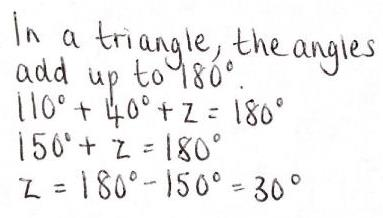 In a triangle, the angles
add up to 180°.
110° + 40° + z = 180°
150° + z = 180°
z = 180° - 150° = 30°